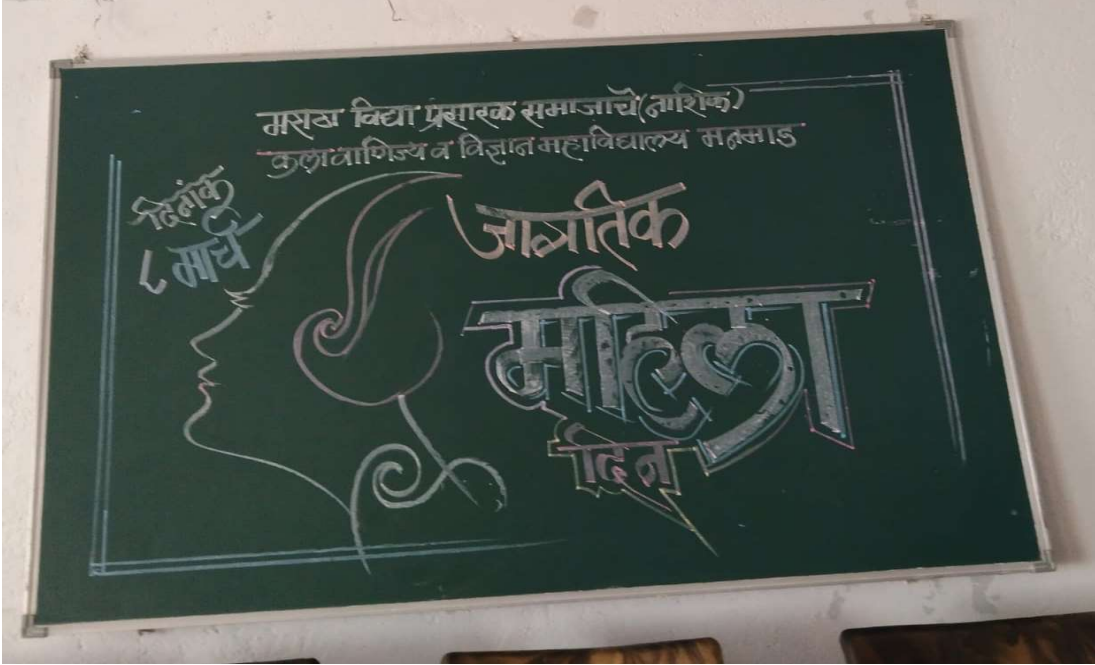 मराठा विद्या प्रसारक समाजाचे(नाशिक)
कला वाणिज्य व विज्ञान महाविद्यालय मनमाड
दिनांक
८ मार्च
जागतिक
महिला
दिन